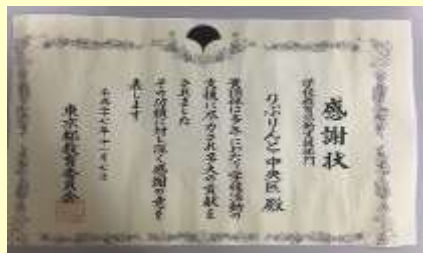 感謝状
りぷりんと・中央区 殿
貴団体は多年にわたり学校活動の
支援に尽力され多大な貢献を
されました
その功績に対し深く感謝の意を
表します
平成二十七年十一月七日
東京都教育委員会